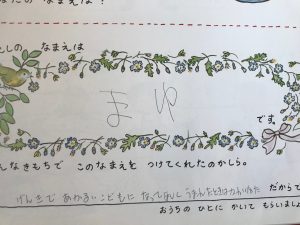 なたの なまえは
たしの なまえは
まゆ
です。
んなきもちで このなまえを つけてくれたのかしら。
げんきで あかるいこどもに なってほしい
だからで
おうちの ひとに かいて もらいましょ